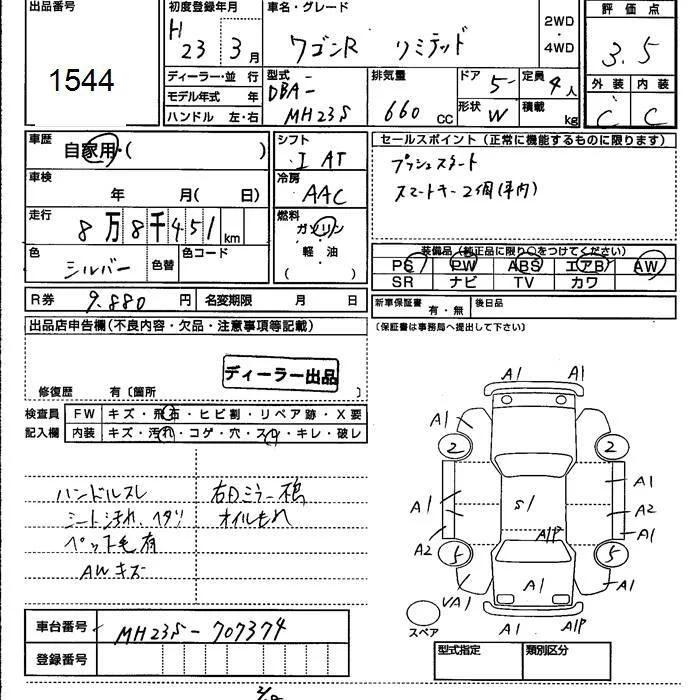 出品番号
1544
初度登録年月
H 23 3月
車名・グレード
ワゴンR リミテッド
2WD
・
4WD
評価点
3.5
ディーラー・並 行
モデル年式 年
ハンドル 左・右
型式
DBA-
MH23S
排気量
660 cc
ドア 5
形状 W
定員 4人
積載 kg
外装 内装
C C
車歴
自家用・( )
車検
年 月( 日)
走行
8万8千451km
色
シルバー
色替
色コード
シフト
I AT
冷房
AAC
燃料
ガソリン
軽・油
( )
セールスポイント(正常に機能するものに限ります)
プッシュスタート
スマートキー2個(車内)
装備品(純正品に限り○をつけてください)
PS PW ABS エアB AW
SR ナビ TV カワ
R券 9.880円 名変期限 月 日
新車保証書 有・無 後日品
(保証書は事務局へ提出して下さい)
出品店申告欄(不良内容・欠品・注意事項等記載)
ディーラー出品
修復歴 有〔箇所 〕
検査員 FW キズ・飛石・ヒビ割・リペア跡・X要
記入欄 内装 キズ・汚れ・コゲ・穴・スレ・キレ・破レ
ハンドルスレ
シート汚れ、ヘタリ
ペット毛有
AWキズ
右Dミラー椙
オイルもれ
A1 A1
A1
2 2
A1
A1 S1 A2
A1P A1
A2
5 5
VA1 A1 A1
スペア
A1 A1P
車台番号 MH23S-707374
登録番号
型式指定 類別区分